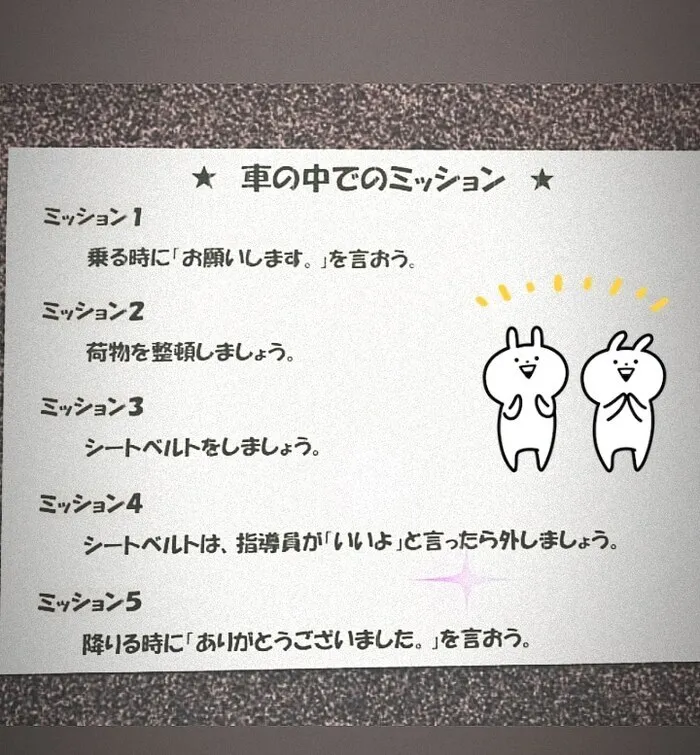 ★ 車の中でのミッション ★
ミッション1
乗る時に「お願いします。」を言おう。
ミッション2
荷物を整頓しましょう。
ミッション3
シートベルトをしましょう。
ミッション4
シートベルトは、指導員が「いいよ」と言ったら外しましょう。
ミッション5
降りる時に「ありがとうございました。」を言おう。